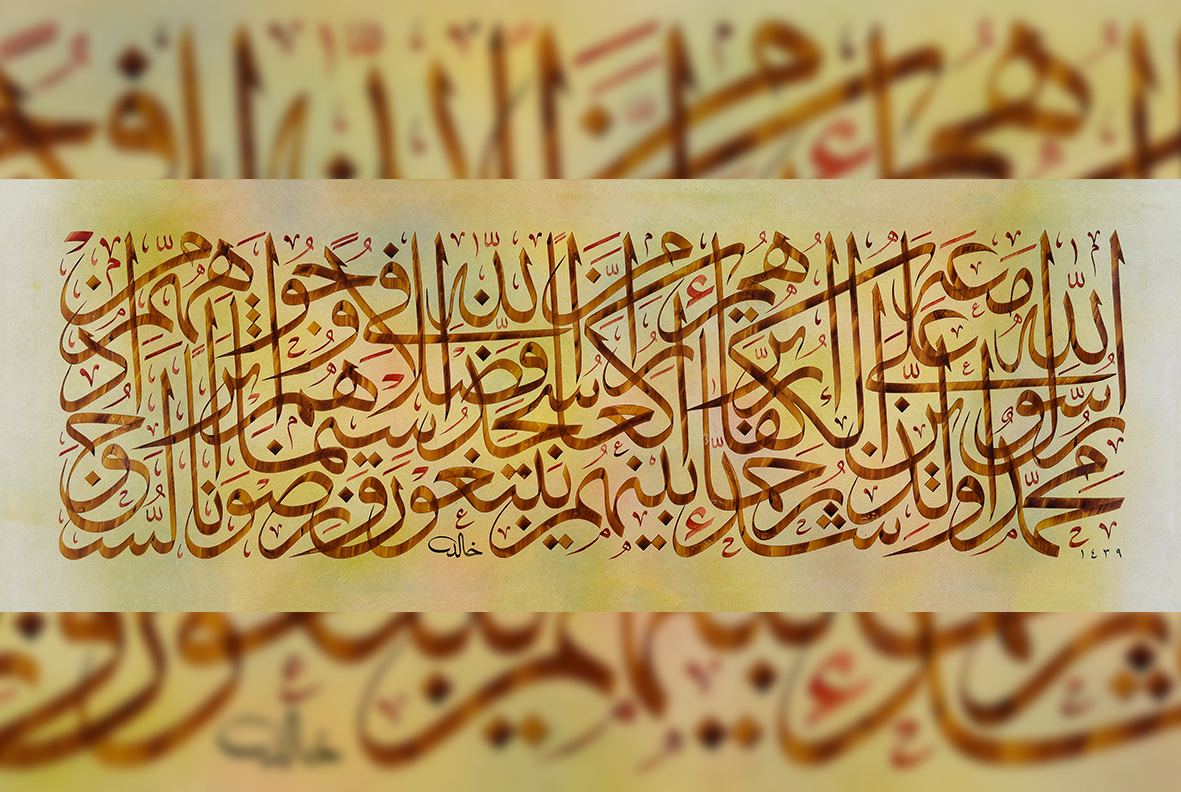 محمد رسول الله والذين معه أشداء على الكفار رحماء بينهم تراهم ركعا سجدا يبتغون فضلا من الله ورضوانا سيماهم في وجوههم من أثر السجود
خالد
١٤٣٩